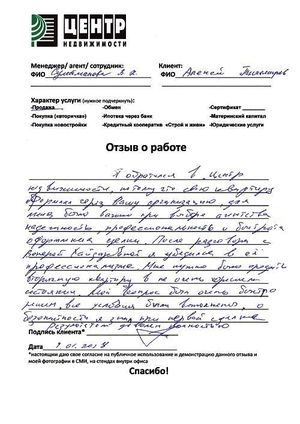 ЦЕНТР
НЕДВИЖИМОСТИ
Менеджер/ агент/ сотрудник:
Клиент:
ФИО
ФИО Алексей
Характер услуги (нужное подчеркнуть):
-Продажа
-Обмен
-Сертификат
-Покупка (вторичная)
-Ипотека через банк
-Материнский капитал
-Покупка новостройки
-Кредитный кооператив «Строй и живи»
-Юридические услуги
Отзыв о работе
Я обратился в Центр
недвижимости, потому что свою квартиру
через Вашу организацию, для
меня было важны при выборе агентства
надежность, профессиональность и быстрота
оформления сделки. После разговора с
я убедился в её
профессионализме. Мне нужно было продать
квартиру в не очень хорошем
состоянии. Мой вопрос был очень быстро
решен, все условия были выполнены, о
безопасности я знал при первой сделке
доволен полностью
Подпись клиента*
Дата
*настоящим даю свое согласие на публичное использование и демонстрацию данного отзыва и
моей фотографии в СМИ, на стендах внутри офиса
Спасибо!